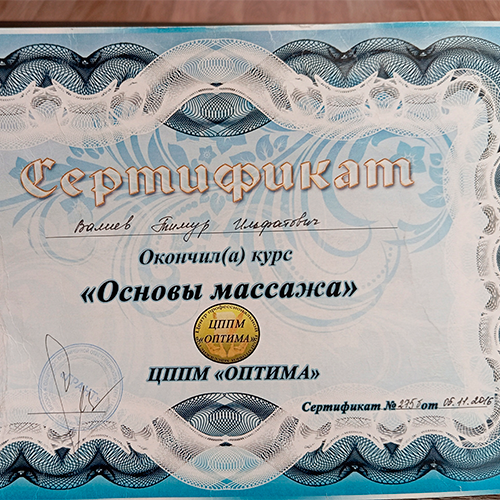 Сертификат
Валиев Тимур Ильфатович
Окончил(а) курс
«Основы массажа»
ЦППМ
«ОПТИМА»
ЦППМ «ОПТИМА»
Сертификат № 2756 от 05.11.2016